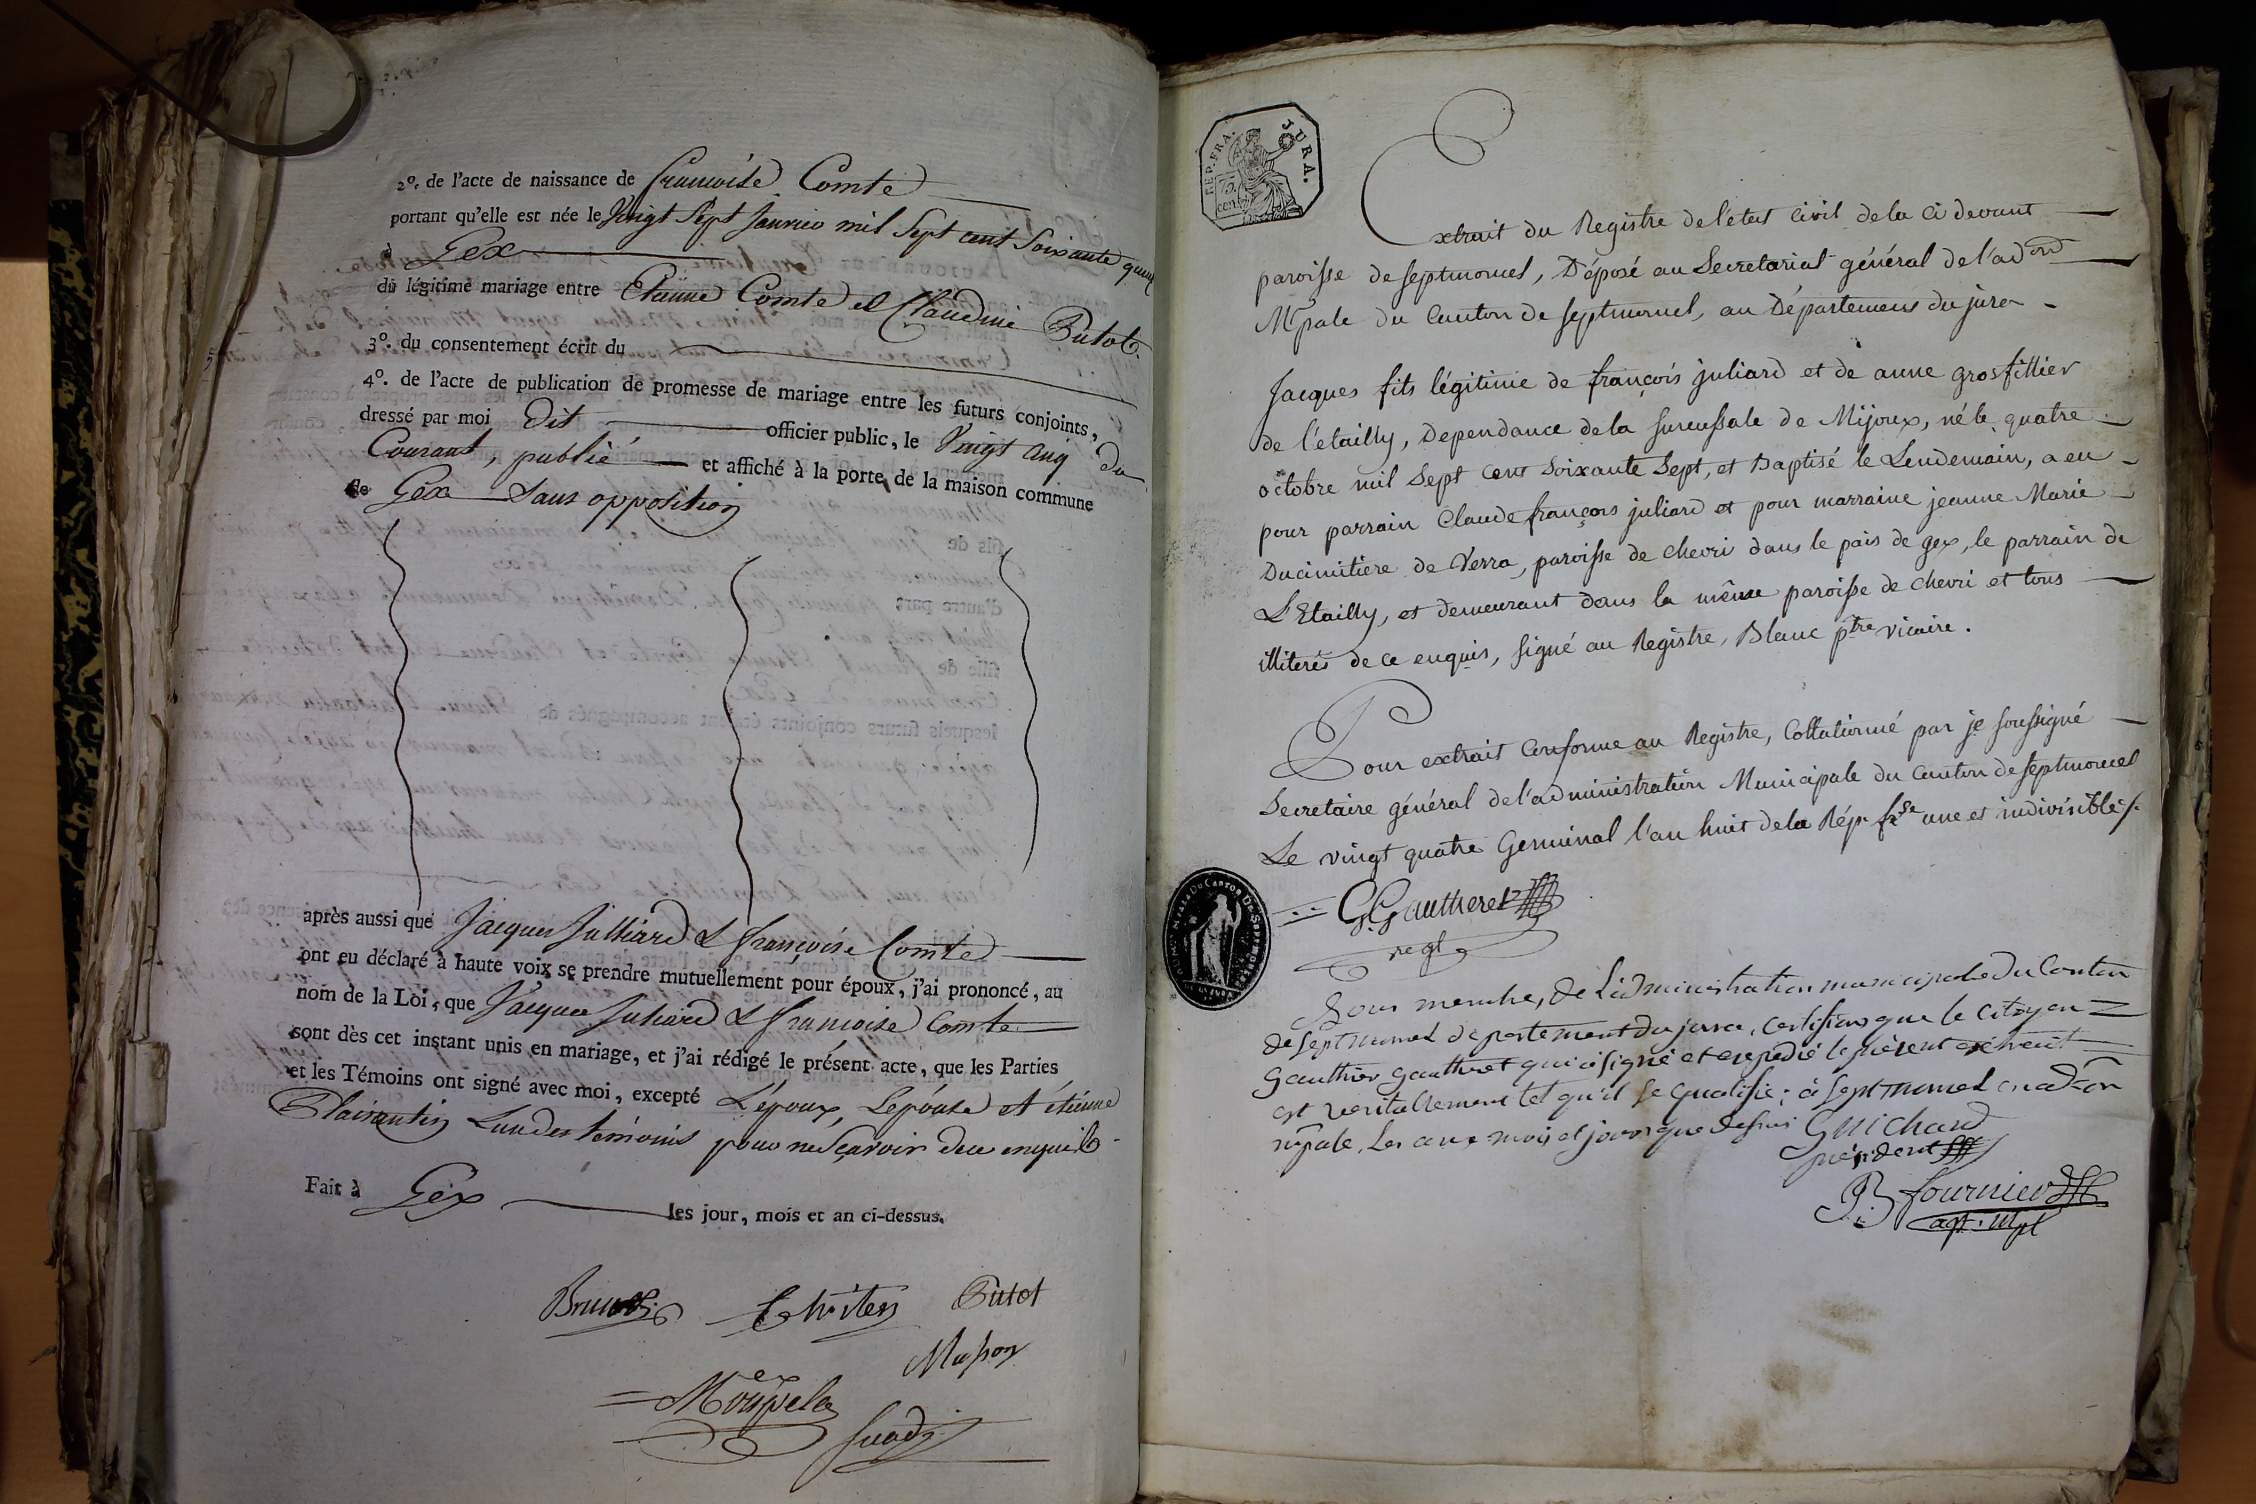 2º. de l'acte de naissance de françoise Comte
portant qu'elle est née le Vingt Sept Janvier mil Sept cent Soixante
à Gex
du légitime mariage entre Etienne Comte et Claudine Putot.
3º. du consentement écrit du
4º. de l'acte de publication de promesse de mariage entre les futurs conjoints,
dressé par moi dit officier public, le Vingt Cinq du
Courant, publié et affiché à la porte de la maison commune
de Gex Sans opposition
après aussi que Jacques Julliard & françoise Comte
ont eu déclaré à haute voix se prendre mutuellement pour époux, j'ai prononcé, au
nom de la Loi, que Jacques Juliard & françoise Comte
sont dès cet instant unis en mariage, et j'ai rédigé le présent acte, que les Parties
et les Témoins ont signé avec moi, excepté L'époux, L'épouse et étienne
Plaisantin L'un des témoins pour ne Sçavoir de ce enquis
Fait à Gex les jour, mois et an ci-dessus.
Putot
REP. FRA. JURA.
75. cen
Extrait du Registre de l'etat civil de la ci devant
paroisse de septmoncel, Déposé au Secretariat général de l'adon
Mpale du Canton de Septmoncel, au Département du jura
Jacques fils légitime de françois juliard et de anne grosfillier
de l'étailly, Dependance de la sucussale de Mijoux, né le quatre
octobre mil Sept cent Soixante Sept, et Baptisé le Lendemain, a eu
pour parrain Claude françois juliard et pour marraine jeanne Marie
Ducimitiere de Verra, paroisse de chevri dans le païs de gex, le parrain de
L'Etailly, et demeurant dans la même paroisse de chevri et tous
illiterés de ce enquis, signé au Registre, Blanc ptre vicaire.
Pour extrait Conforme au Registre, Collationné par je soussigné
Secretaire général de l'administration Municipale du Canton de septmoncel
Le vingt quatre Germinal l'an huit de la Rép. frse une et indivisible
G. Gautheret
Nous membre, de L'administration municipale du Canton
de Septmoncel departement du jura, Certifions que le Citoyen
Gauthier Gautheret qui a signé et expedié le présent extrait
est veritablement tel qu'il se qualifie; à Septmoncel en adon
mpale, Les ans mois et jour que dessus Guichard
président
fournier
agt. mpl